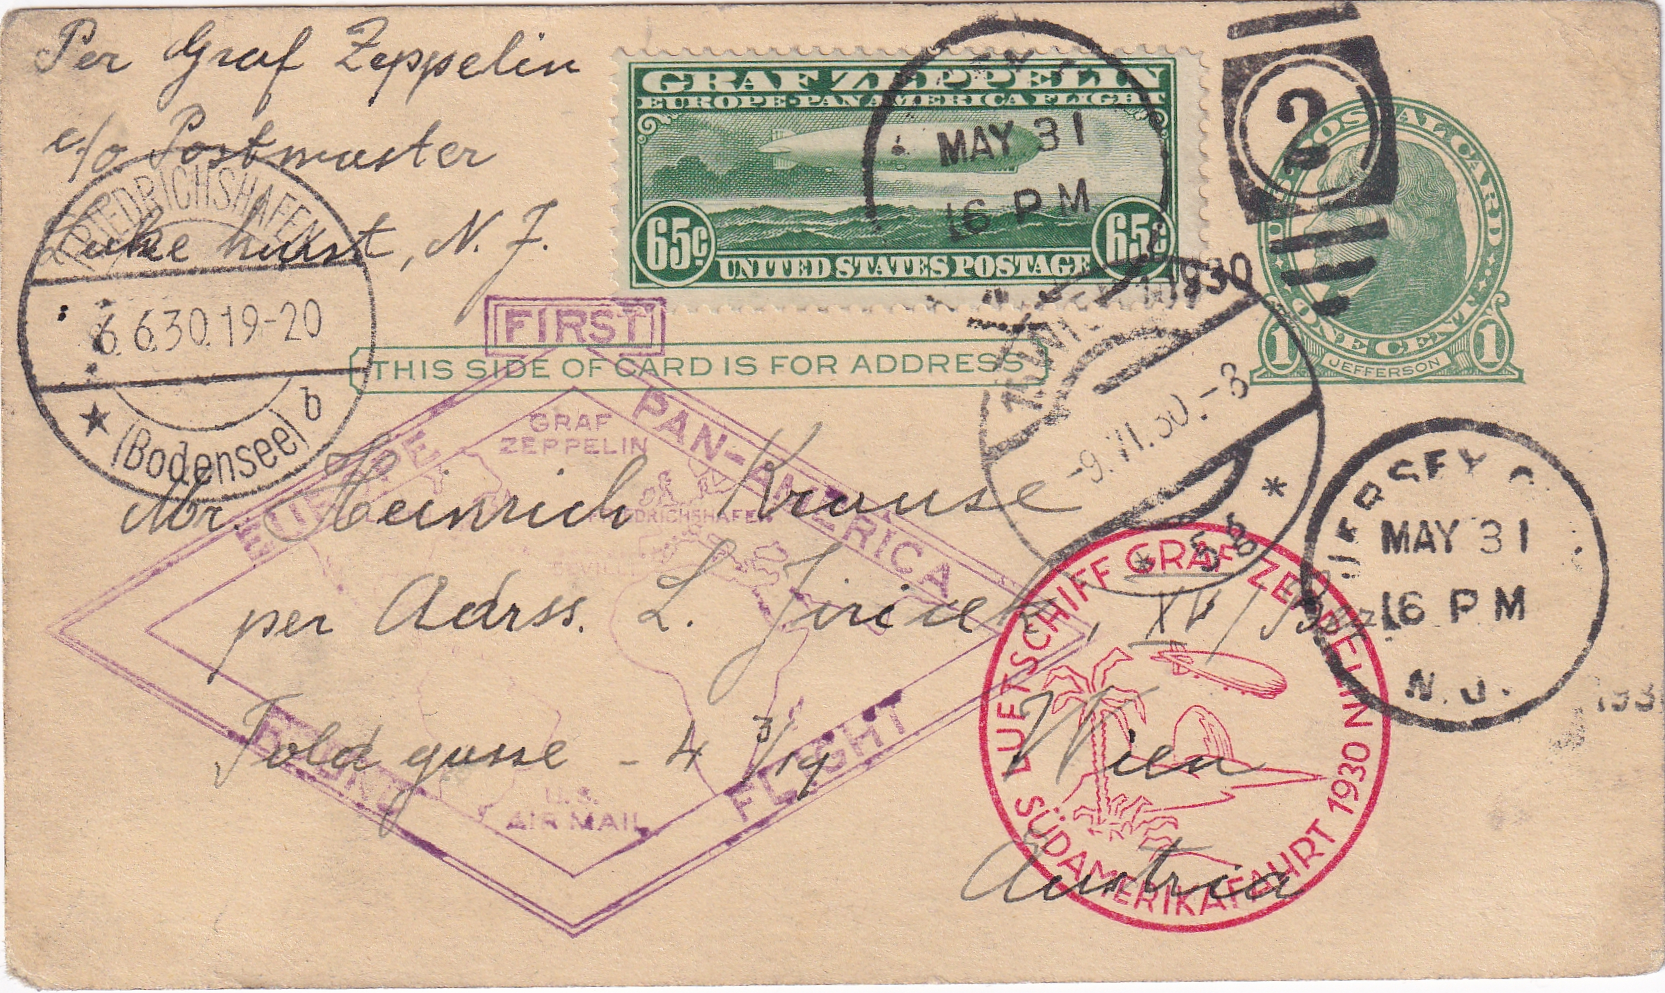 Per Graf Zeppelin
c/o Postmaster
Lake hurst, N. J.
GRAF ZEPPELIN
EUROPE-PAN AMERICA FLIGHT
65¢ 65¢
UNITED STATES POSTAGE
MAY 31
16 PM
1930
2
POSTAL CARD
ONE CENT
1 JEFFERSON 1
FRIEDRICHSHAFEN
6.6.30.19-20
(Bodensee) b
FIRST
THIS SIDE OF CARD IS FOR ADDRESS
EUROPE PAN-AMERICA
GRAF
ZEPPELIN
FRIEDRICHSHAFEN
SEVILLE
ROUND FLIGHT
U.S.
AIR MAIL
-9.VI.30.-8
JERSEY C
MAY 31
16 PM
N.J.
193
LUFTSCHIFF GRAF ZEPPELIN
SÜDAMERIKAFAHRT 1930
Mr. Heinrich Krause
per Adrss. L. Jiricek, XV/
gasse - 4 3/19 Wien
Austria